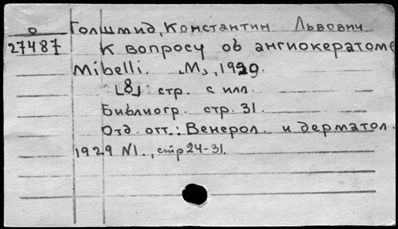 о Голшмид, Константин Львович
27487 К вопросу об ангиокератоме
Mibelli. "М", 1929.
[8] стр. с илл.
Библиогр. стр. 31.
Отд. отт.: Венерол. и дерматол.
1929 N1., стр 24-31.